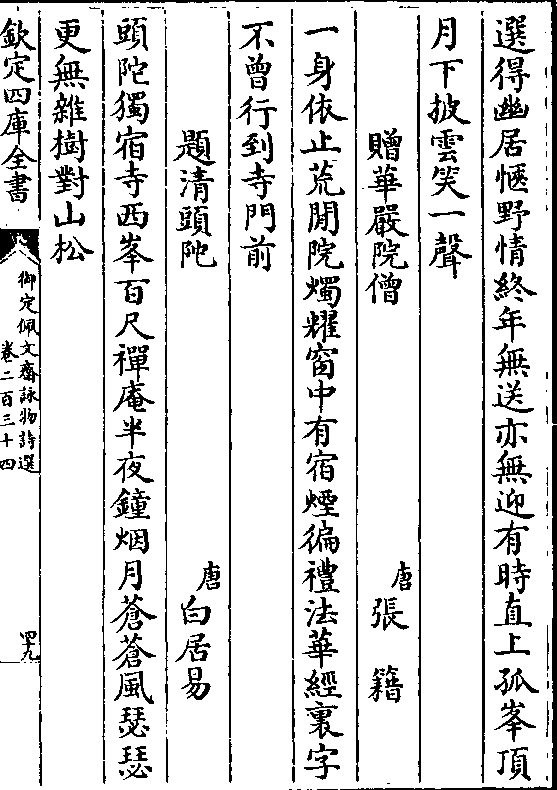 選得幽居愜野情終年無送亦無迎有時直上孤峯頂
月下披雲笑一聲
贈華嚴院僧 唐 張籍
一身依止荒閒院燭耀窗中有宿煙徧禮法華經裏字
不曾行到寺門前
題清頭陀 唐 白居易
頭陀獨宿寺西峯百尺禪庵半夜鐘烟月蒼蒼風瑟瑟
更無雜樹對山松
欽定四庫全書
御定佩文齋詠物詩選
卷二百三十四
四九